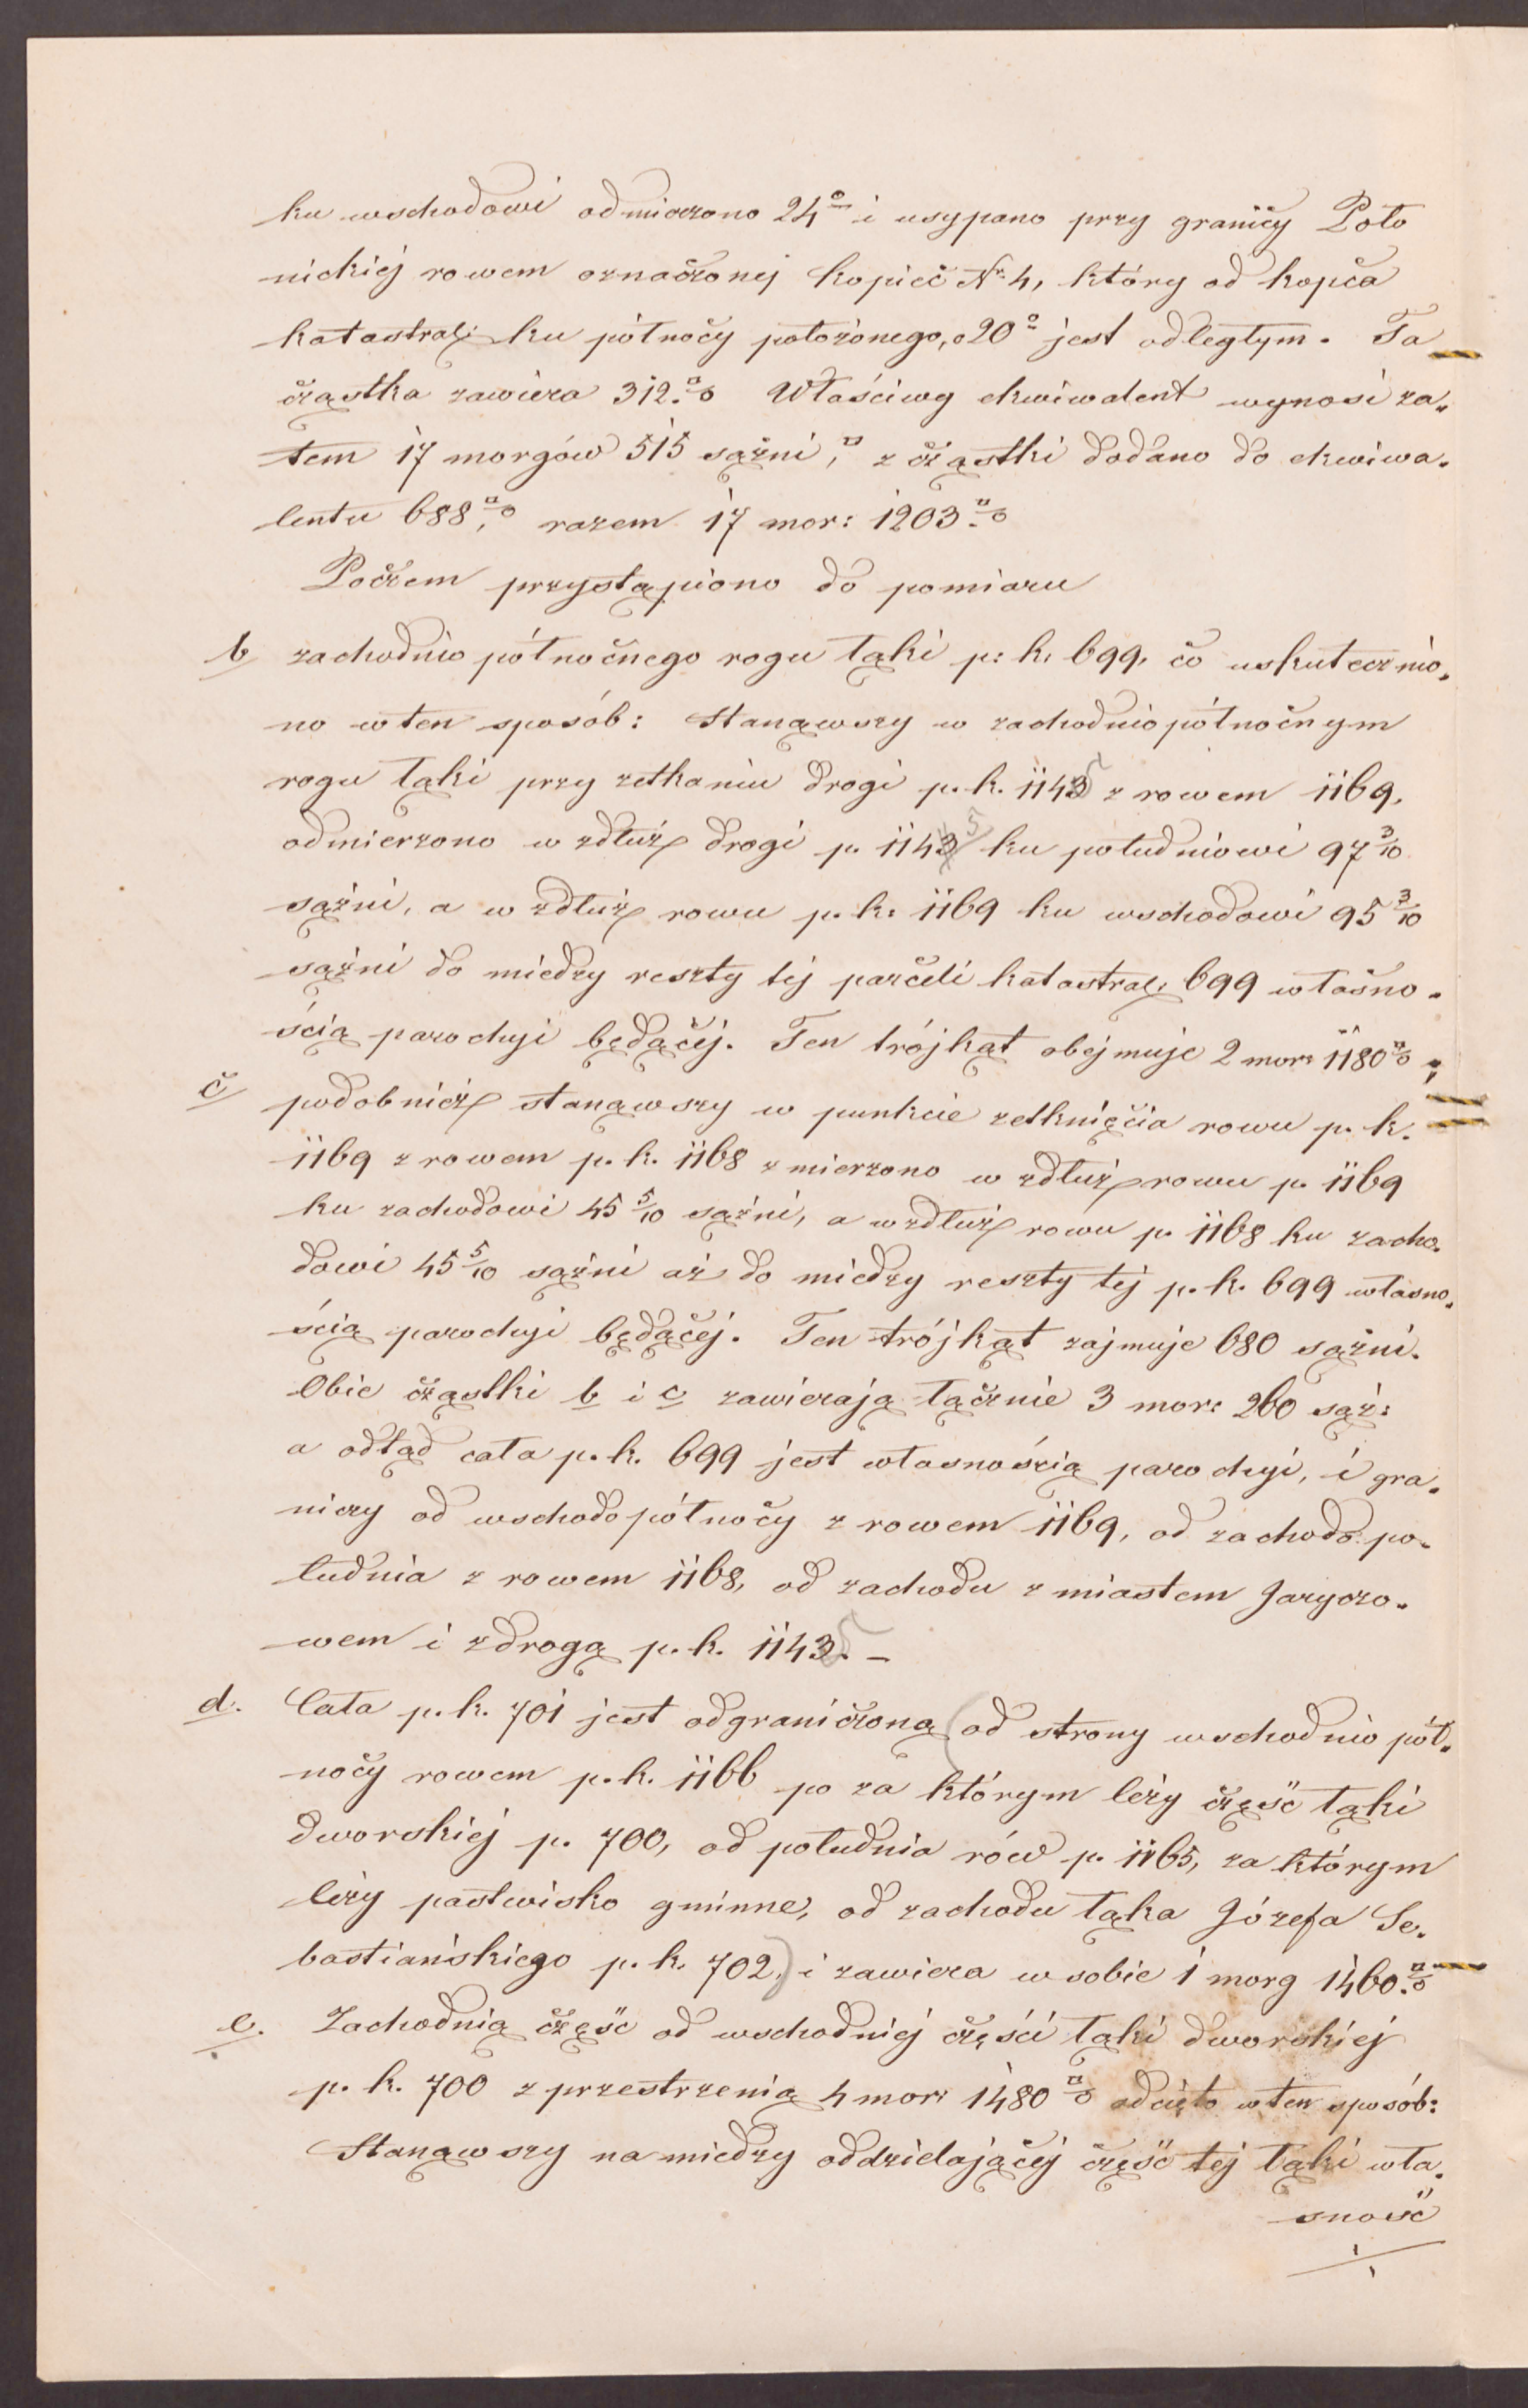 ku wschodowi odmierzono 24° i usypano przy granicy Poło
nickiéj rowem oznaczonej kopiec Nr. 4, który od kopca
katastral: ku północy położonego, o 20° jest odległym. Ta
cząstka zawiera 312.□° Właściwy ekwiwalent wynosi za„
tem 17 morgów 515 sążni,□ z cząstki dodano do ekwiwa„
lentu 688,□° razem 17 mor: 1203.□°
Poczem przystąpiono do pomiaru
b zachodnio północnego rogu łąki p: k. 699, co uskutecznio„
no w ten sposób: Stanąwszy w zachodnio północnym
rogu łąki przy zetkaniu drogi p. k. 1143 5 z rowem 1169,
odmierzono w zdłuż drogi p. 1143 5 ku południowi 97 3/10
sążni, a w zdłuż rowu p. k: 1169 ku wschodowi 95 3/10
sążni do miedzy reszty téj parceli katastral. 699 własno„
ścią parochyi będącéj. Ten trójkąt obejmuje 2 mor: 1180□° „
c podobnież stanąwszy w punkcie zetknięcia rowu p. k.
1169 z rowem p. k. 1168 zmierzono w zdłuż rowu p. 1169
ku zachodowi 45 5/10 sążni, a wzdłuż rowu p. 1168 ku zacho„
dowi 45 5/10 sążni aż do miedzy reszty téj p. k. 699 własno„
ścią parochyi będącej. Ten trójkąt zajmuje 680 sążni.
Obie cząstki b i c zawierają łącznie 3 mor: 260 sąż:
a odtąd cała p. k. 699 jest własnością parochyi, i gra„
niczy od wschodo północy z rowem 1169, od zachodo po„
łudnia z rowem 1168, od zachodu z miastem Jaryczo„
wem i z drogą p. k. 1143 5. –
d. Cała p. k. 701 jest odgraniczoną (od strony wschodnio pół„
nocy rowem p. k. 1166 po za którym leży część łąki
dworskiéj p. 700, od południa rów p. 1165, za którym
leży pastwisko gminne, od zachodu łąka Józefa Se„
bastiańskiego p. k. 702,) i zawiera w sobie 1 morg 1460.□°
e. Zachodnią część od wschodniéj części łąki dworskiéj
p. k. 700 z przestrzenią 4 mor: 1480□° odcięto w ten sposób:
Stanąwszy na miedzy oddzielającéj część téj łąki wła„
sność